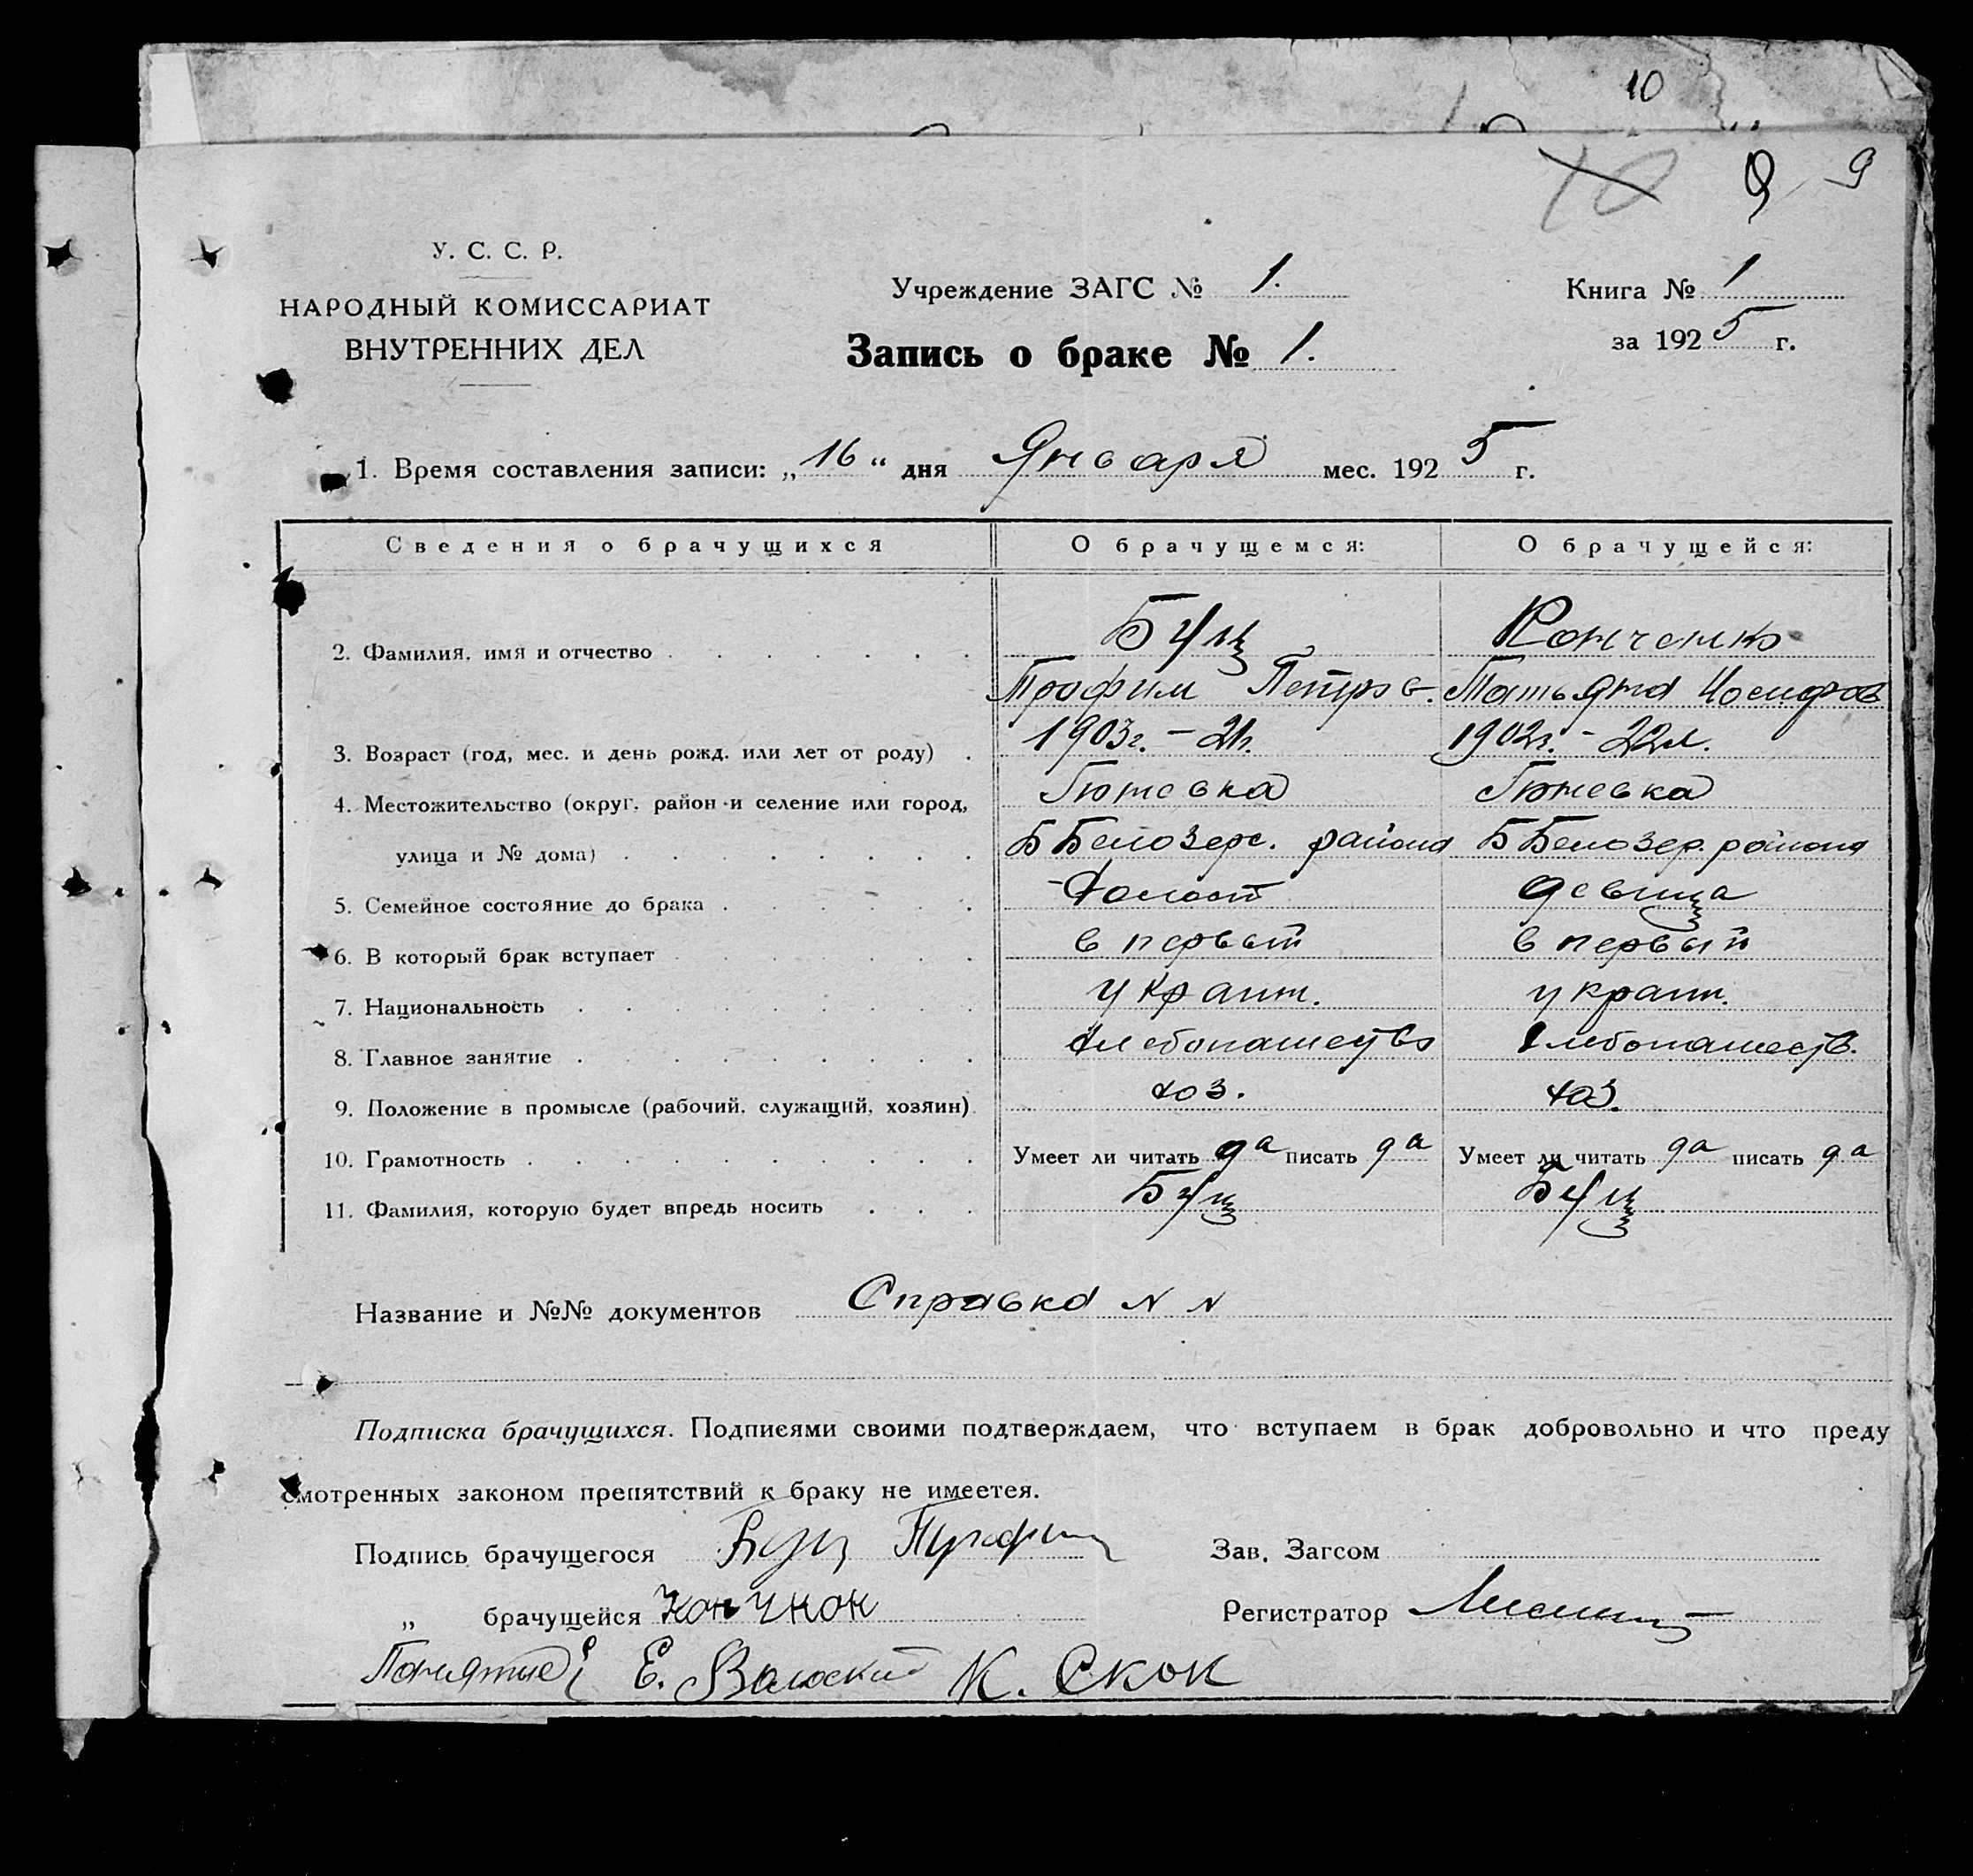 10
10 9 9
У. С. С. Р.
НАРОДНЫЙ КОМИССАРИАТ
ВНУТРЕННИХ ДЕЛ
Учреждение ЗАГС № 1.
Запись о браке № 1.
Книга № 1
за 1925 г.
1. Время составления записи: „16“ дня Января мес. 1925 г.
Сведения о брачущихся О брачущемся: О брачущейся:
2. Фамилия, имя и отчество Буц Конченко
Трофим Петров. Татьяна Иосифов
3. Возраст (год, мес. и день рожд. или лет от роду) 1903г. - 21г. 1902г. - 22л.
4. Местожительство (округ, район и селение или город, Гюневка Гюневка
улица и № дома) Б Белозерс. района Б Белозер. района
5. Семейное состояние до брака Холост девица
6. В который брак вступает в первый в первый
7. Национальность украин. украин.
8. Главное занятие хлебопашество хлебопашеств.
9. Положение в промысле (рабочий, служащий, хозяин) хоз. хоз.
10. Грамотность Умеет ли читать да писать да Умеет ли читать да писать да
11. Фамилия, которую будет впредь носить Буц Буц
Название и №№ документов Справка N N
Подписка брачущихся. Подписями своими подтверждаем, что вступаем в брак добровольно и что преду
смотренных законом препятствий к браку не имеетея.
Подпись брачущегося Буц Зав. Загсом
„ брачущейся Кончкон Регистратор
Понятые Е. К. Скок